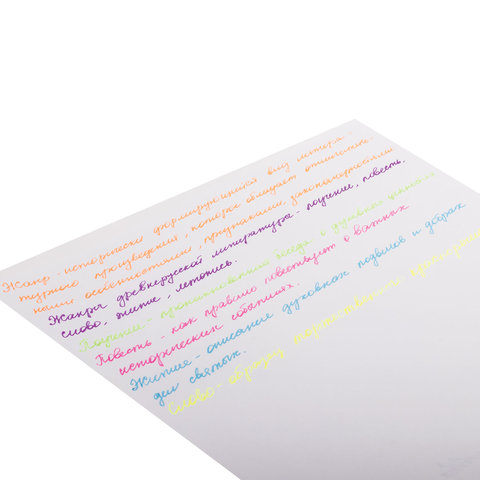 Жанр - исторически формирующийся вид литера-
турного произведения, которое обладает отличитель-
ными особенностями, признаками, закономерностями
Жанры древнерусской литературы - поучение, повесть,
слово, житие, летопись.
Поучение - проникновенная беседа о духовных ценностях
Повесть - как правило повествует о важных
исторических событиях.
Житие - описание духовных подвигов и добрых
дел святых.
Слово - образец торжественного